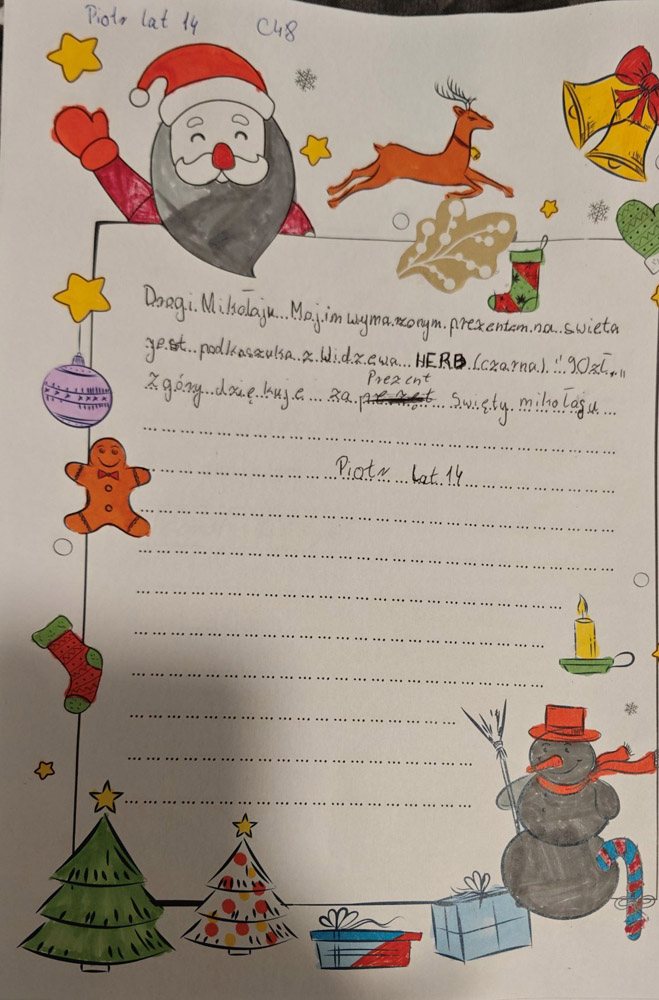 Piotr lat 14 C48
Drogi Mikołaju Moj.im wymarzonym prezentem na święta
jest podkoszulka z Widzewa HERB (czarna) "90zł"
Prezent
Z góry dziękuję za Święty mikołaju
Piotr lat 14